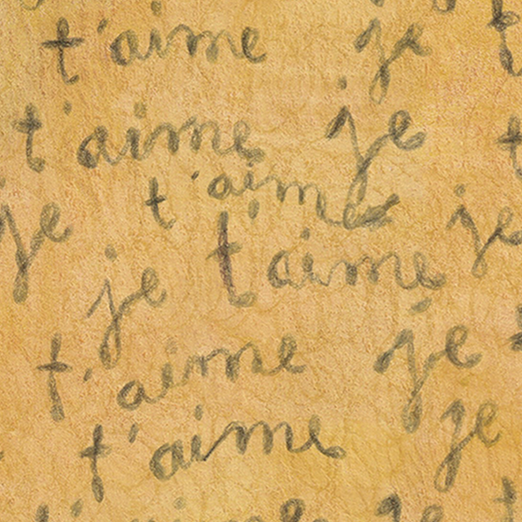 t'aime je
t'aime je
t'aime
je je
t'aime
je
t'aime je
t'aime je